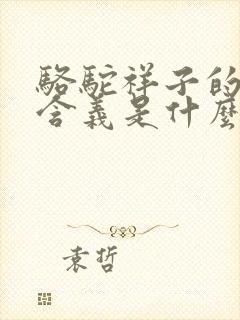 骆駝祥子的
含義是什麽
袁哲